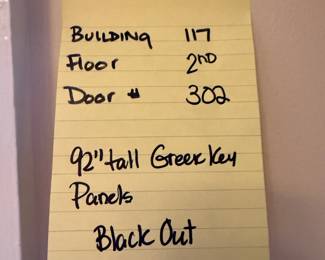 Building 117
Floor 2ND
Door # 302
92" tall Greek Key
Panels
Black Out